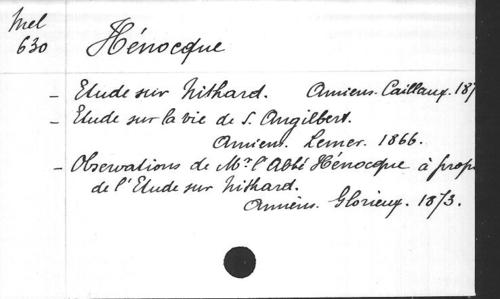 Mel
630
Hénocque
- Etude sur Nithard. Amiens. Caillaux. 187
- Etude sur la vie de S. Angilbert.
Amiens. Lemer. 1866.
- Observations de Mr. l'Abbé Hénocque à prop
de l'Etude sur Nithard.
Amiens. Glorieux. 1873.